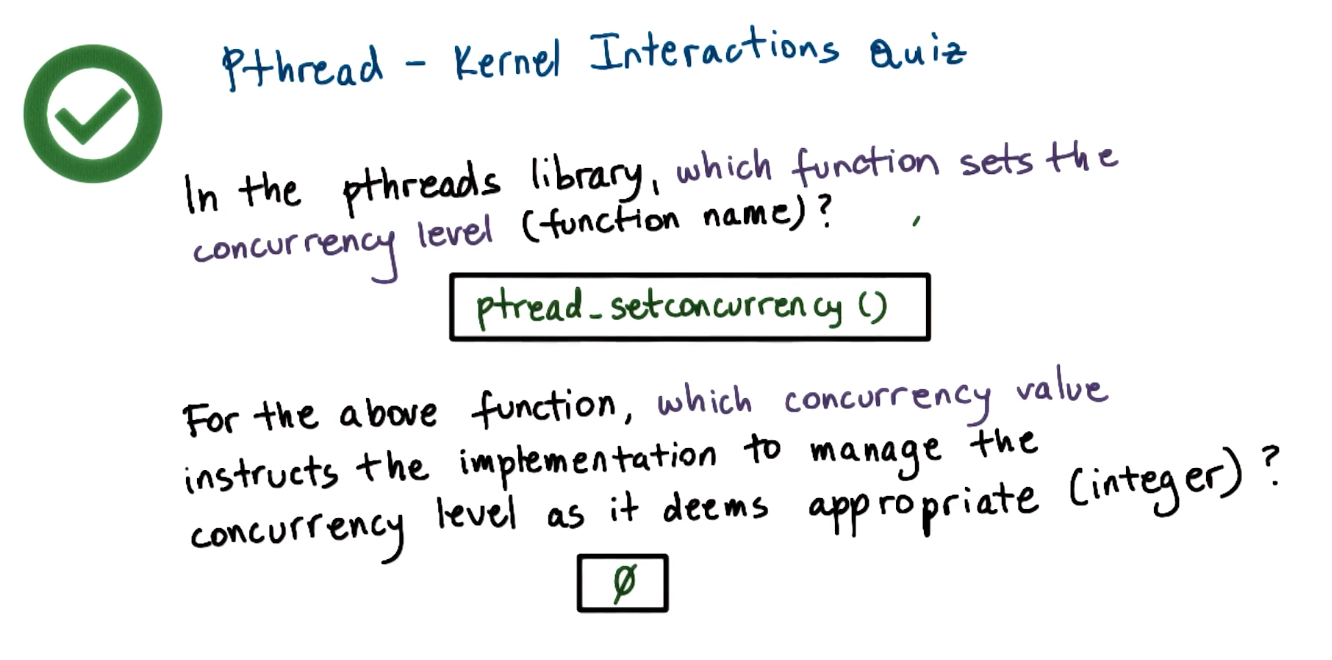 Pthread - Kernel Interactions Quiz
In the pthreads library, which function sets the
concurrency level (function name)?
ptread_setconcurrency ()
For the above function, which concurrency value
instructs the implementation to manage the
concurrency level as it deems appropriate (integer)?
0